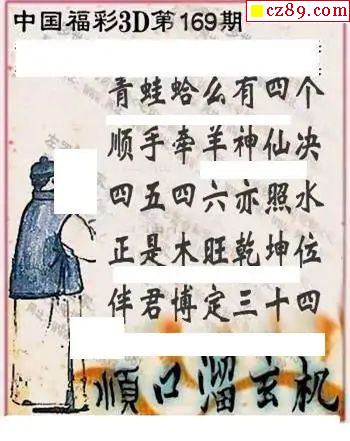 cz89.com
中国福彩3D第169期
青蛙蛤么有四个
顺手牵羊神仙决
四五四六亦照水
正是木旺乾坤位
伴君博定三十四
顺口溜玄机